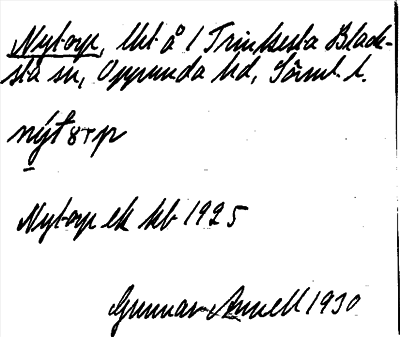 Nytorp, lht å 1 Trinksesta Black-
sta sn, Oppunda hd, Sörml. l.
nýtorp
Nytorp ek kb 1925
Gunnar Annell 1930